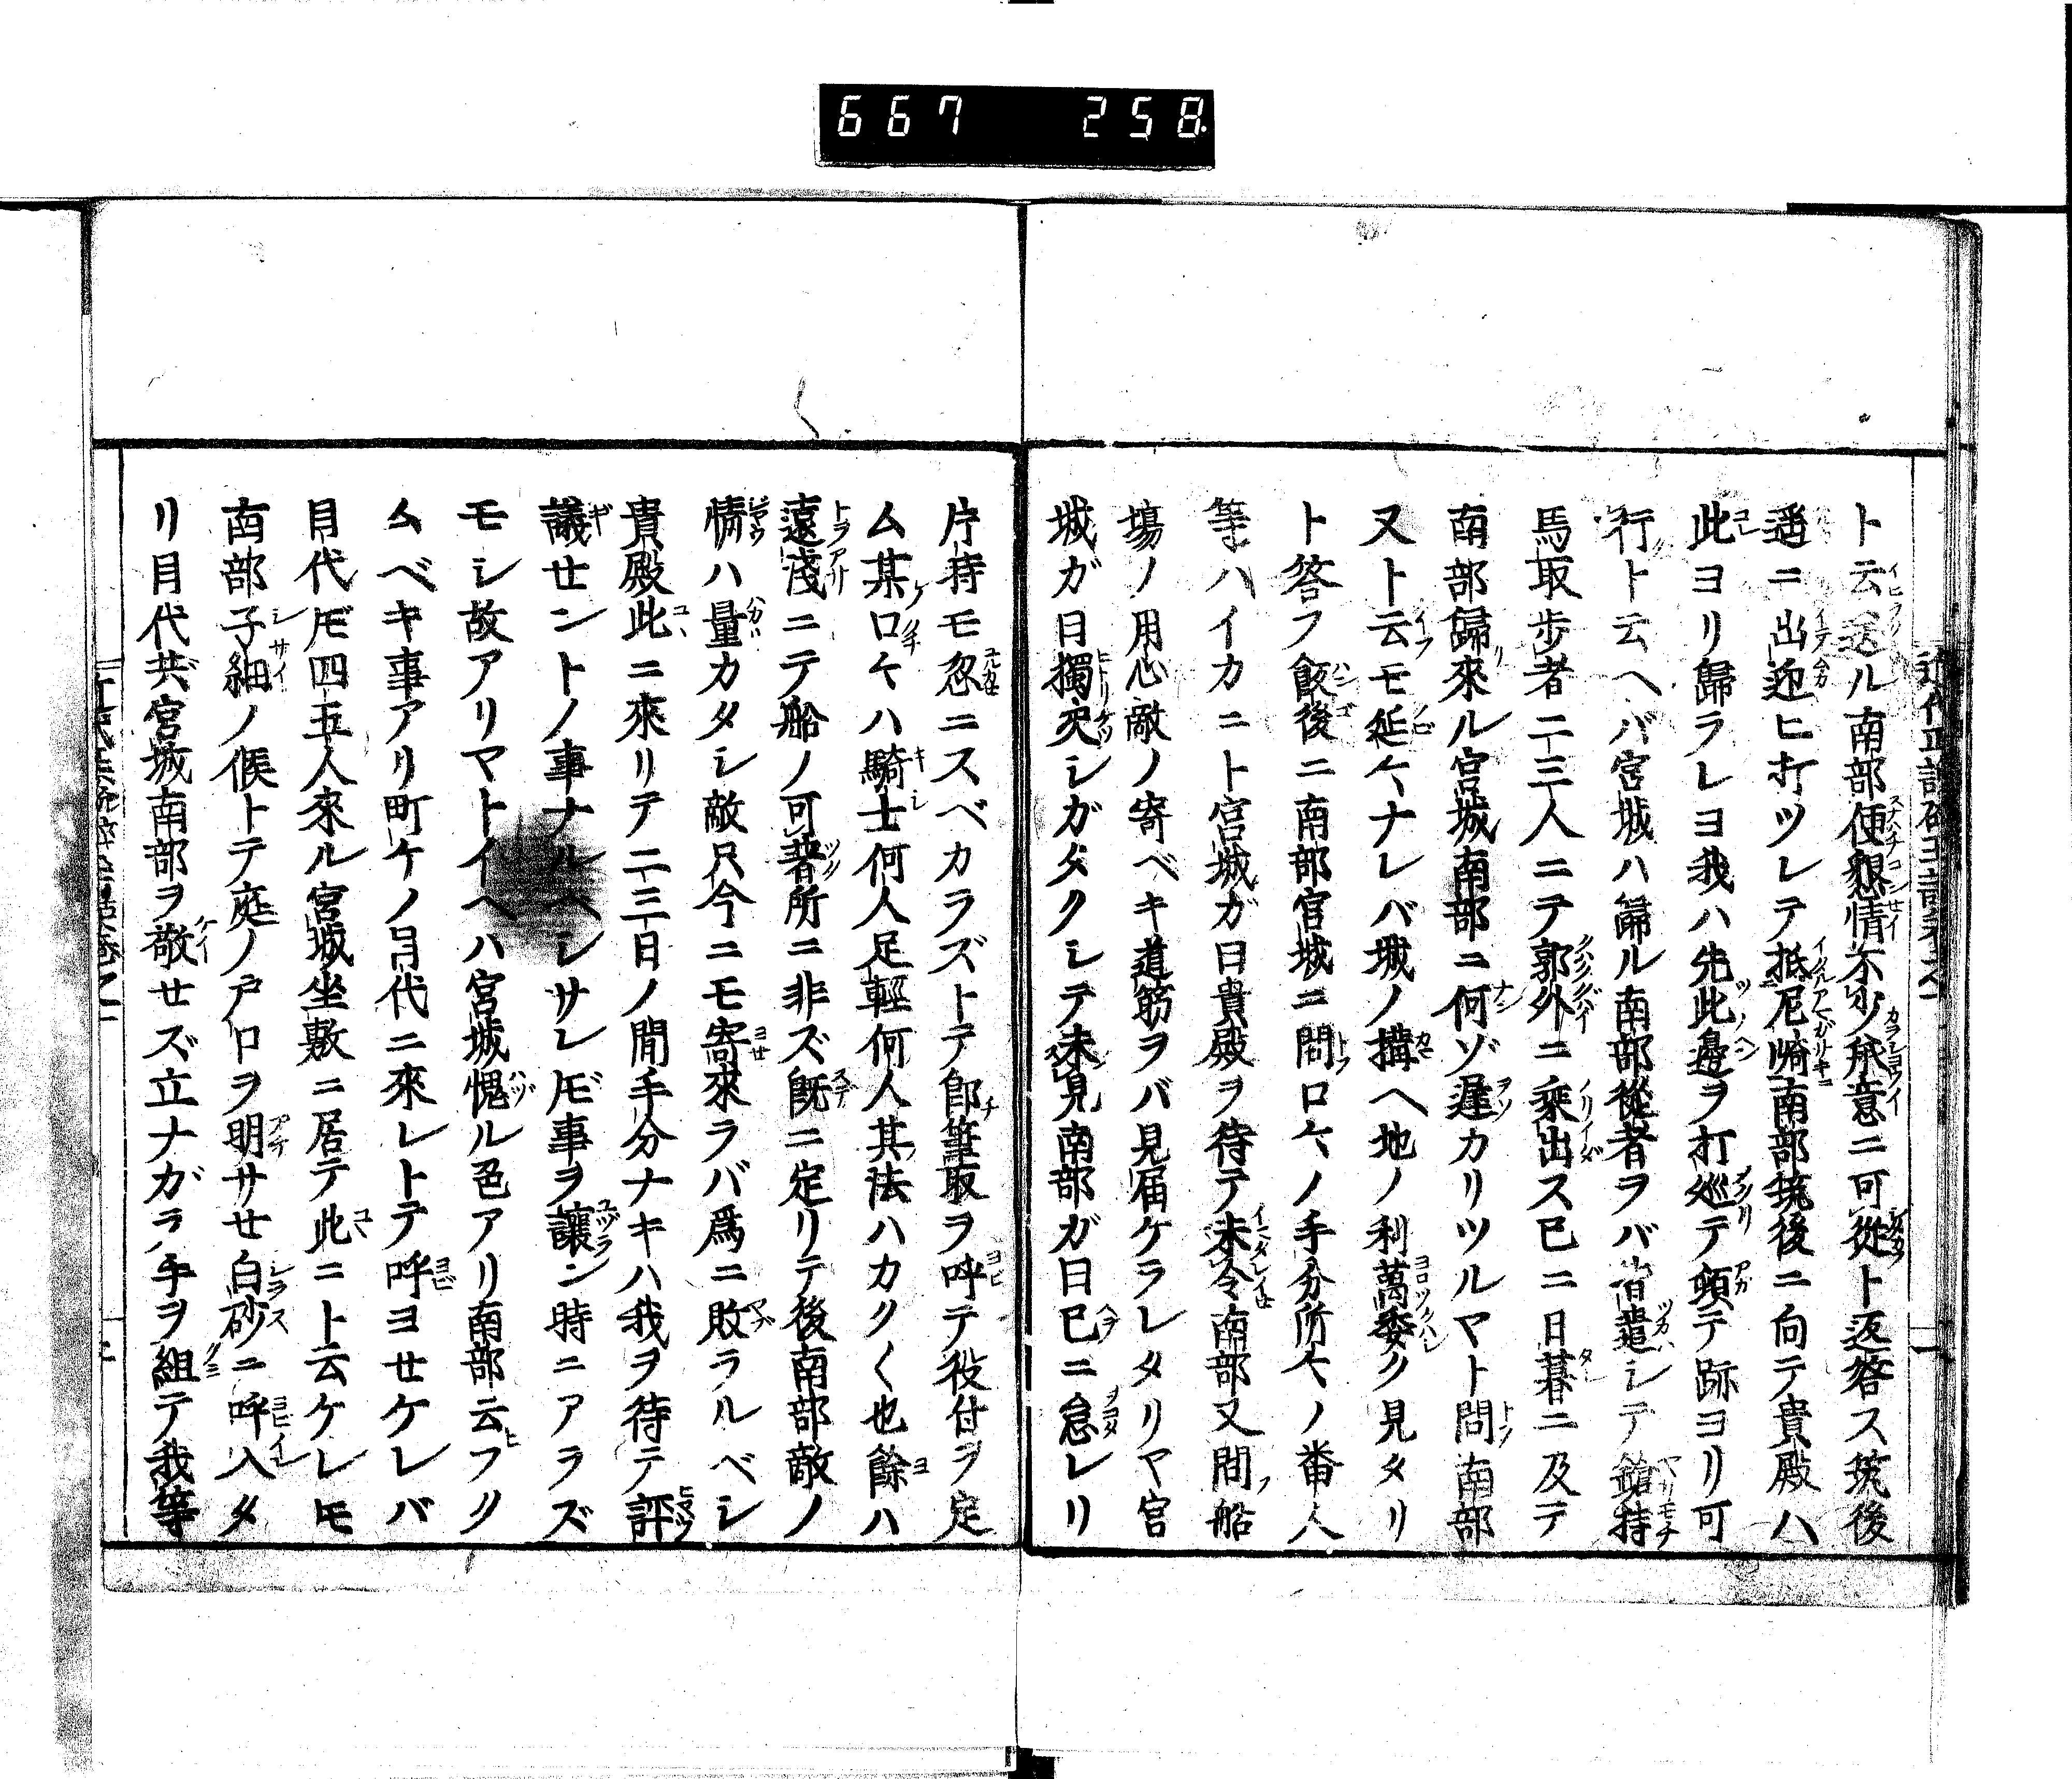 667 258
ト云送ル南部便懇情不少承意ニ可從ト返答ス筑後
ニ出迎ヒ打ツレテ抵尼崎南部筑後ニ向テ貴殿ハ
此ヨリ歸ラレヨ我ハ先此邊ヲ打巡テ頓テ跡ヨリ可
行ト云ヘバ宮城ハ歸ル南部從者ヲバ皆遣シテ鎗持
馬取歩者二三人ニテ郭外ニ乘出ス已ニ日暮ニ及テ
南部歸來ル宮城南部ニ何ゾ遲カリツルマト問南部
又ト云モ延〻ナレバ城ノ搆ヘ地ノ利萬委ク見タリ
ト答フ飯後ニ南部宮城ニ問口〻ノ手分所〻ノ番人
等ハイカニト宮城ガ曰貴殿ヲ待テ未令南部又問船
塲ノ用心敵ノ寄ベキ道筋ヲバ見届ケラレタリマ宮
城ガ曰獨决シガタクシテ未見南部ガ曰已ニ怠レリ
片時モ忽ニスベカラズトテ即筆取ヲ呼テ役付ヲ定
ム某口〻ハ騎士何人足輕何人其法ハカク〱也餘ハ
遠淺ニテ船ノ可著所ニ非ズ既ニ定リテ後南部敵ノ
情ハ量カタシ敵只今ニモ寄來ラバ爲ニ敗ラルベシ
貴殿此ニ來リテ二三日ノ間手分ナキハ我ヲ待テ評
議せントノ事ナルヘシサレ𪜈事ヲ讓ン時ニアラズ
モシ故アリマトイヘハ宮城愧ル色アリ南部云フク
ムベキ事アリ町ケノ目代ニ來レトテ呼ヨせケレバ
目代𪜈四五人來ル宮城坐敷ニ居テ此ニト云ケレモ
南部子細ノ候トテ庭ノ戸口ヲ明サせ白砂ニ呼入タ
リ目代共宮城南部ヲ敬せズ立ナガラ手ヲ組テ我等